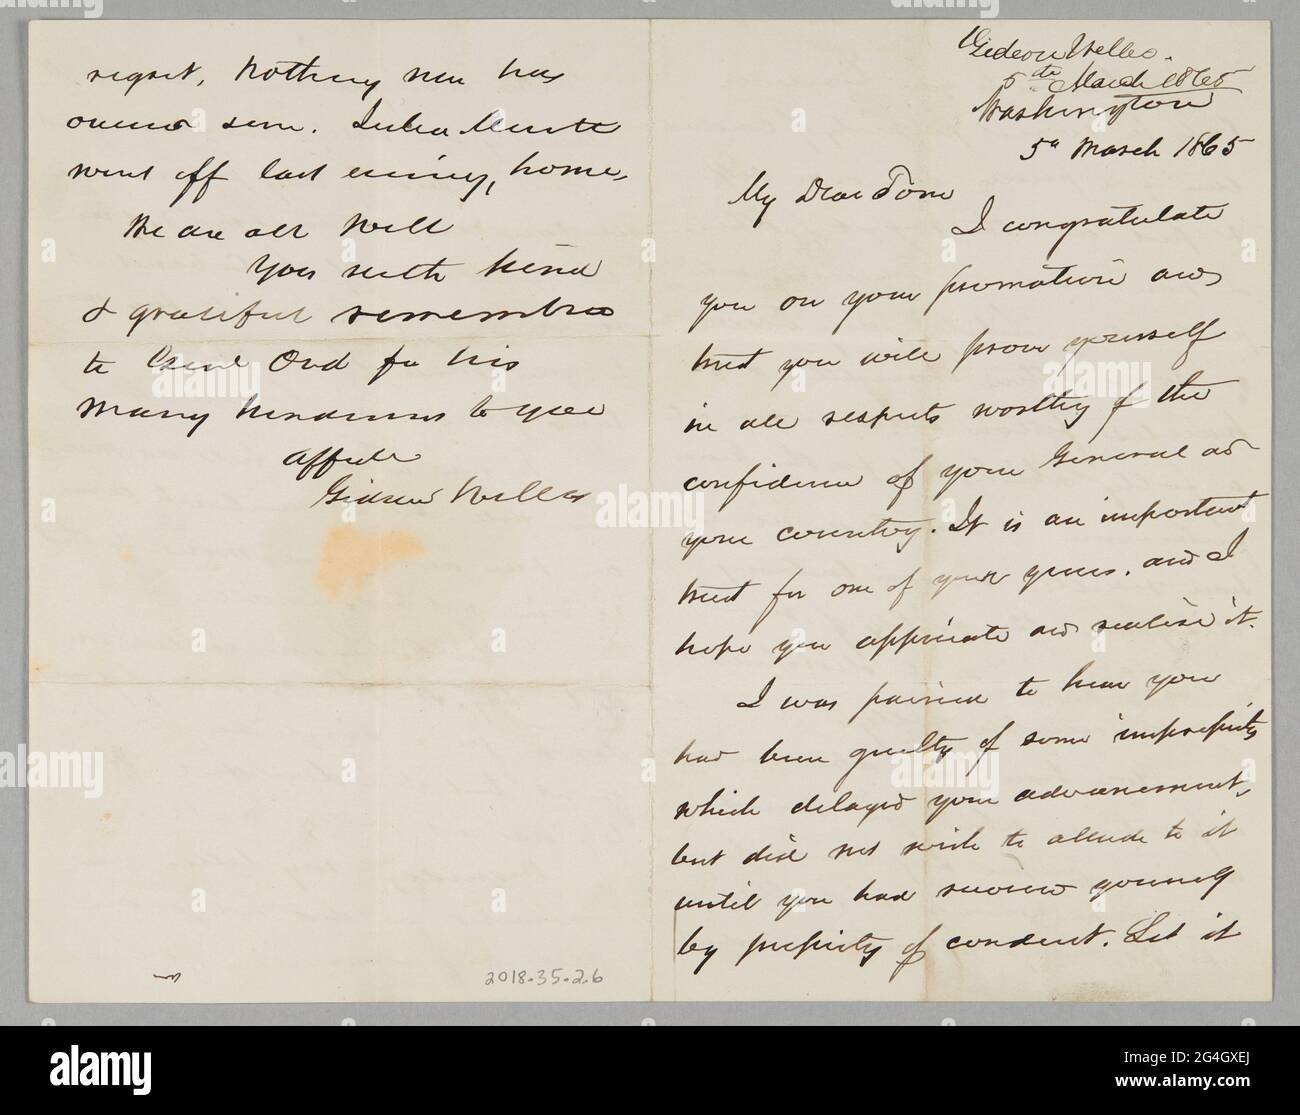 Gideon Welles.
5th March 1865
Washington
5th March 1865
My Dear Tom
I congratulate
you on your promotion and
trust you will prove yourself
in all respects worthy of the
confidence of your General and
your country. It is an important
trust for one of your years, and I
hope you appreciate and realise it.
I was pained to hear you
had been guilty of some impropriety
which delayed your advancement,
but did not wish to allude to it
until you had
by propriety of conduct. Let it
regret. Nothing new has
here. Julia
went off last evening, home,
We are all well
You with kind
& grateful remembrance
to Genl Ord for his
many kindnesses to you
affectte
Gideon Welles
2018.35.2.6
alamy
Image ID: 2G4GXEJ
www.alamy.com